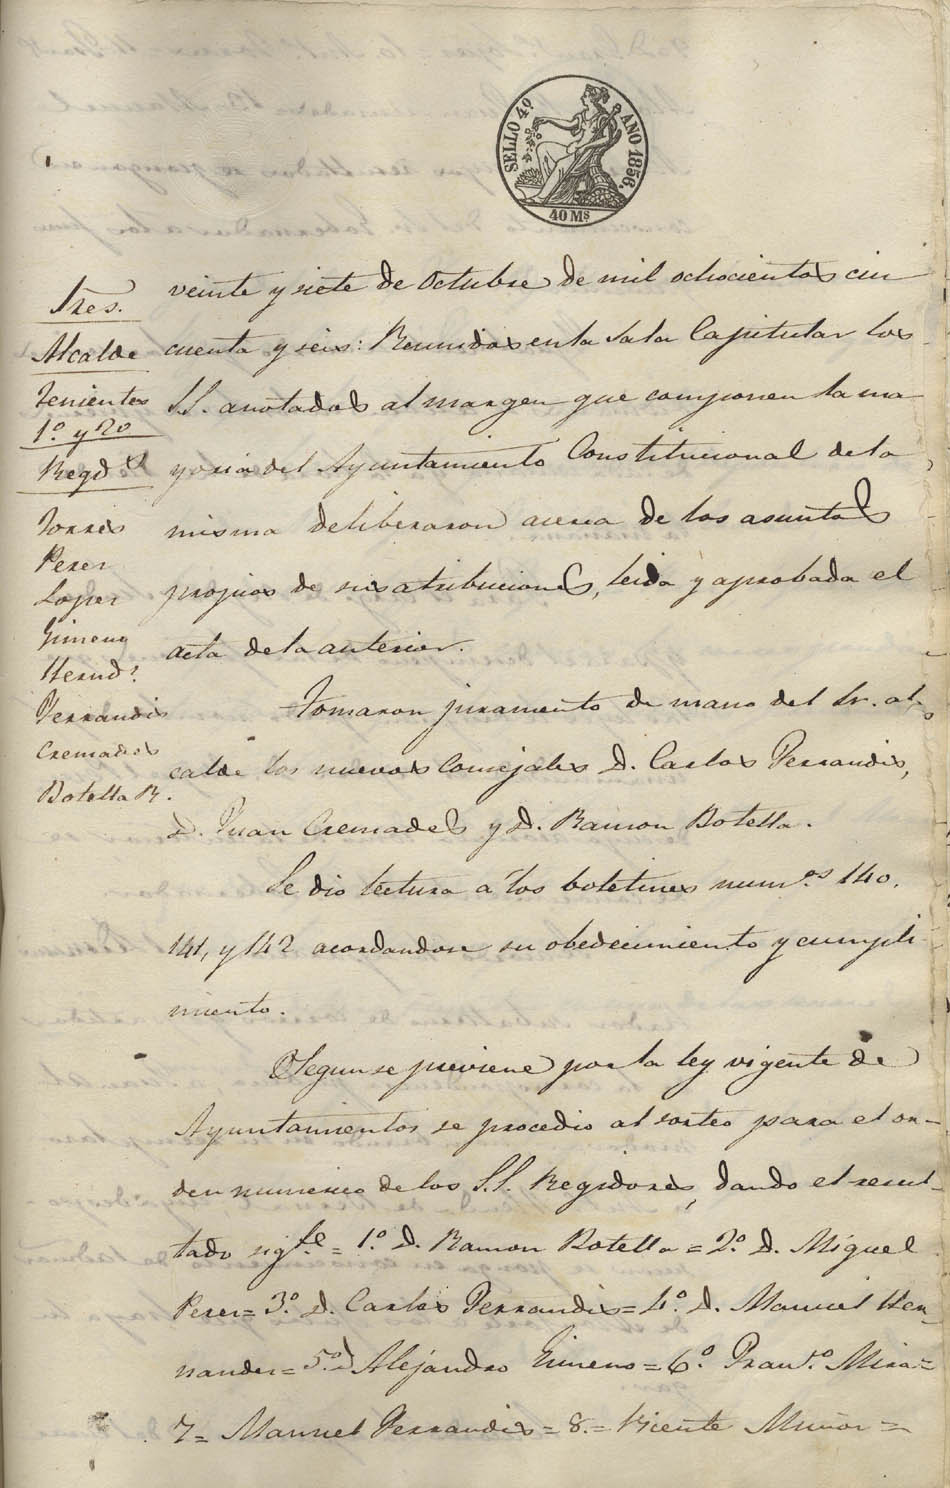 SELLO 4º AÑO 1856.
40 Ms
Sres.
Alcalde
Tenientes
1º. y 2º
Regds
Torres
Perez
Lopez
Gimeno
Hernds.
Ferrandis
Cremades
Botella R.
veinte y siete de Octubre de mil ochocientos cin
cuenta y seis: Reunidos en la Sala Capitular los
S.S. anotados al margen que componen la ma
yoria del Ayuntamiento Constitucional de la
misma deliberaron acerca de los asuntos
propios de sus atribuciones, leida y aprobada el
acta de la anterior.
Tomaron juramento de mano del Sr. al
calde los nuevos Concejales D. Carlos Ferrandis,
D. Juan Cremades y D. Ramon Botella.
Se dio lectura a los boletines num.os 140,
141, y 142 acordandose su obedecimiento y cumpli
miento.
Segun se previene por la ley vigente de
Ayuntamientos se procedio al sorteo para el or-
den numerico de los S.S. Regidores, dando el resul-
tado sigte. = 1º. D. Ramon Botella = 2º. D. Miguel
Perez = 3º. D. Carlos Ferrandis = 4º. D. Manuel Her-
nandez = 5º. D. Alejandro Gimeno = 6º. Franco. Mira =
7 = Manuel Ferrandis = 8. = Vicente Muñoz =